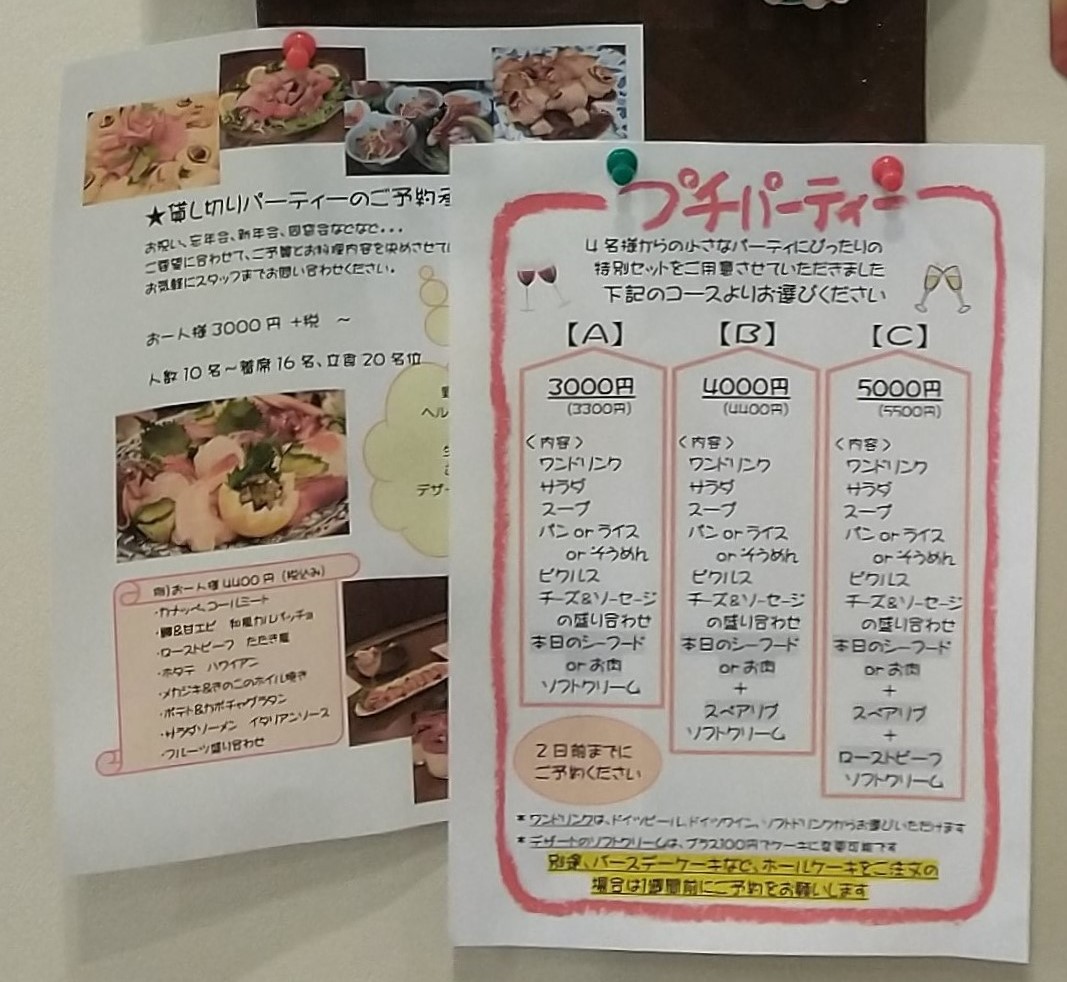 ★貸し切りパーティーのご予約承
お祝い、忘年会、新年会、同窓会などなど・・・
ご要望に合わせて、ご予算とお料理内容を決めさせて
お気軽にスタッフまでお問い合わせください。
お一人様3000円 +税 ～
人数10名～着席16名、立食20名位
ヘル
デザー
例)お一人様4400円 (税込み)
・カナッペ、コールミート
・鯛&甘エビ 和風カルパッチョ
・ローストビーフ たたき風
・ホタテ ハワイアン
・メカジキ&きのこのホイル焼き
・ポテト&カボチャグラタン
・サラダソーメン イタリアンソース
・フルーツ盛り合わせ
プチパーティー
4名様からの小さなパーティにぴったりの
特別セットをご用意させていただきました
下記のコースよりお選びください
【A】
3000円
(3300円)
〈内容〉
ワンドリンク
サラダ
スープ
パン or ライス
or そうめん
ピクルス
チーズ&ソーセージ
の盛り合わせ
本日のシーフード
or お肉
ソフトクリーム
【B】
4000円
(4400円)
〈内容〉
ワンドリンク
サラダ
スープ
パン or ライス
or そうめん
ピクルス
チーズ&ソーセージ
の盛り合わせ
本日のシーフード
or お肉
+
スペアリブ
ソフトクリーム
【C】
5000円
(5500円)
〈内容〉
ワンドリンク
サラダ
スープ
パン or ライス
or そうめん
ピクルス
チーズ&ソーセージ
の盛り合わせ
本日のシーフード
or お肉
+
スペアリブ
+
ローストビーフ
ソフトクリーム
2日前までに
ご予約ください
*ワンドリンクは、ドイツビール、ドイツワイン、ソフトドリンクからお選びいただけます
*デザートのソフトクリームは、プラス100円でケーキに変更可能です
別途、バースデーケーキなど、ホールケーキをご注文の
場合は1週間前にご予約をお願いします